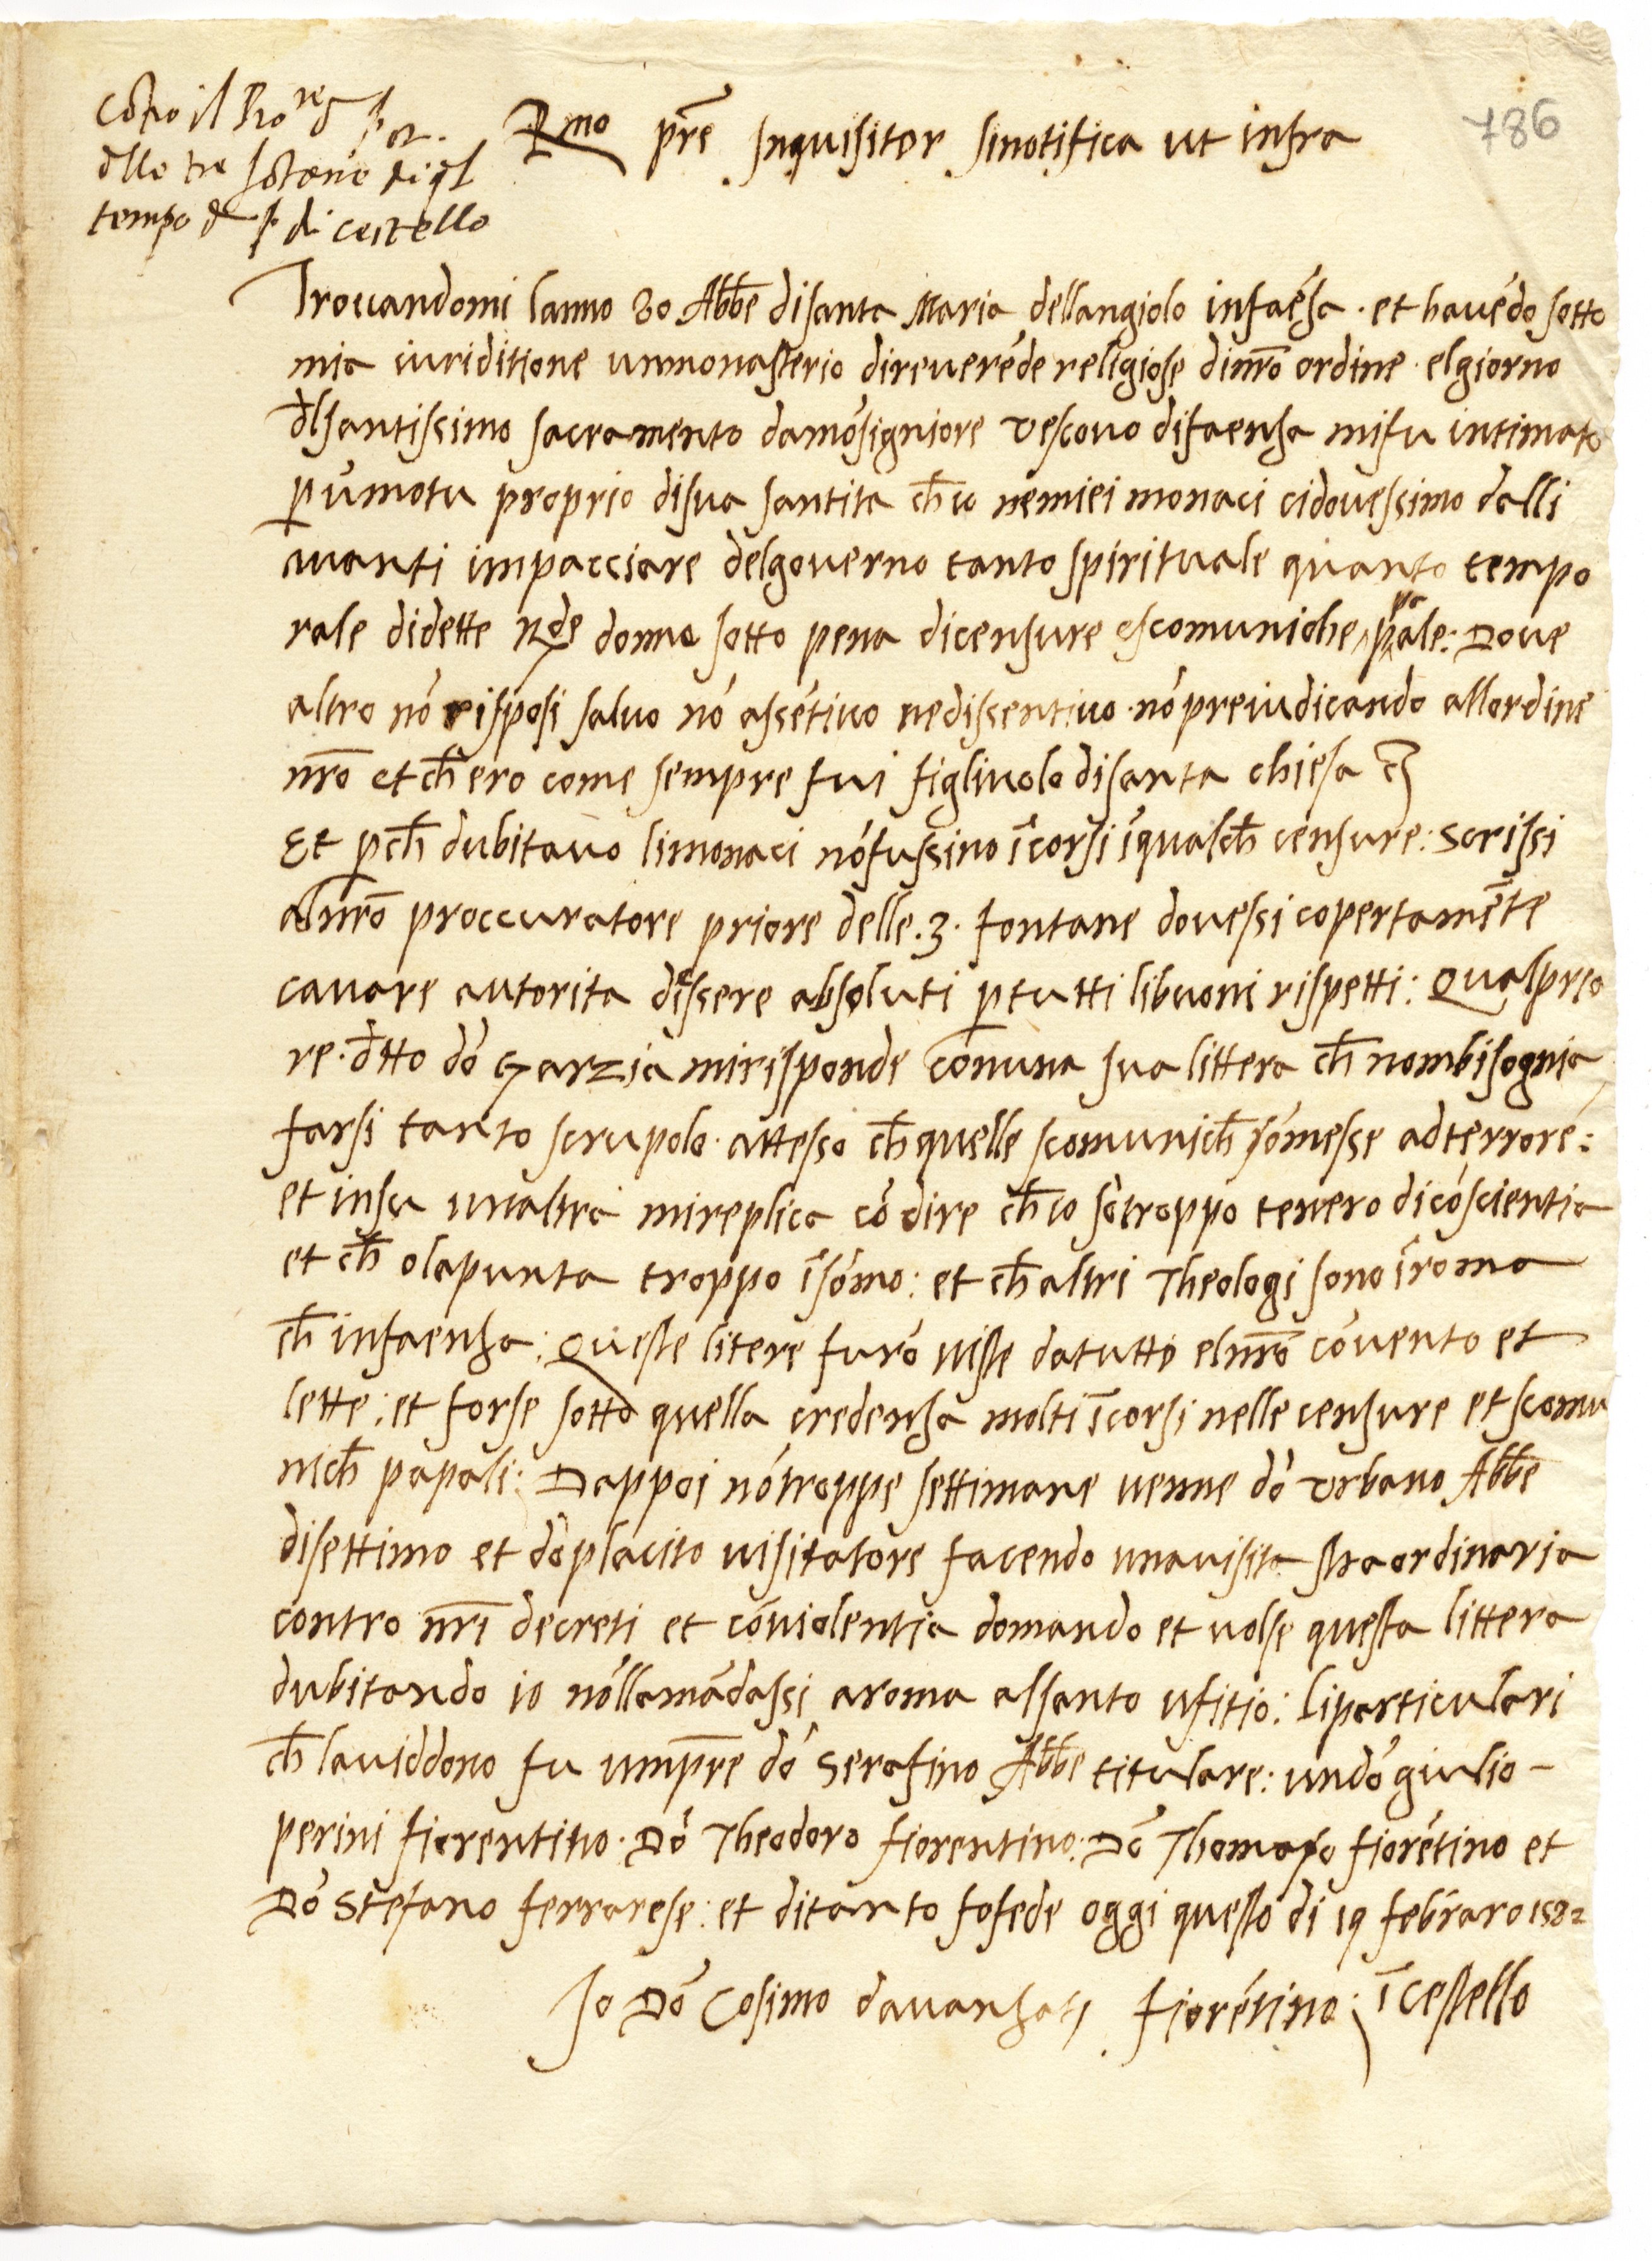 786
Cōtro il Prore
dlle tre fōtane di ql
tempo di cestello
Rmo pr̄e Inquisitor sinotifica ut infra
Trovandomi lanno 80 Abb̄e disanta Maria dellangiolo infaēsa · et havēdo sotto
mia iuriditione unmonasterio direverēde religiose dinr̄o ordine · elgiorno
dlsantissimo sacramento damōsigniore vescovo difaensa mifu intimato
p ūmotu proprio disua santita ch̄ io nemiei monaci cidovessimo dalli
avanti impacciare delgoverno tanto spirituale quanto tempo
rale didette Rde donne sotto pena dicensure escomuniche papale: Dove
altro nō risposi salvo nō assētivo nedissentivo · nō preiudicando allordine
nr̄o et ch̄ ero come sempre fui figlivolo disanta chiesa
Et pch̄ dubitavo limonaci nōfussino īcorsi īqualch̄ censure: scrissi
alnr̄o proccuratore priore delle .3. fontane dovessi copertamēte
cavare autorita dessere absoluti p tutti libuoni rispetti: Qualprio
re · dtto dō Garzia mirisponde conuna sua littera ch̄ nombisognia
farsi tanto scrupolo · atteso ch̄ quelle scomunich̄ sōmesse adterrore:
et insu unaltra mireplica cō dire ch̄ io sō troppo tenero dicōscientia
et ch̄ olapunta troppo īsōmo: et ch̄ altri Theologi sono īroma
ch̄ infaensa: Queste litere furō viste datutto elnr̄o cōvento et
lette: et forse sotto quella credensa molti īcorsi nelle censure et scomu
nich̄ papali: Dappoi nōtroppe settimane venne dō Urbano Abb̄e
disettimo et dō placito visitatore facendo unavisita straordinaria
contro nr̄i decreti et cōviolentia domando et volse questa littera
dubitando io nōllamādassi aroma alsanto ufitio: liparticulari
ch̄ laviddono fu umpr̄e dō Serafino Abb̄e titulare: undō giulio -
perini fiorentino · Dō Theodoro fiorentino: Dō Thomaso fiorētino et
Dō Stefano ferrarese: et ditanto fofede oggi questo di 19 febraro 1582
Io Dō Cosimo davansati fiorētino: ī Cestello